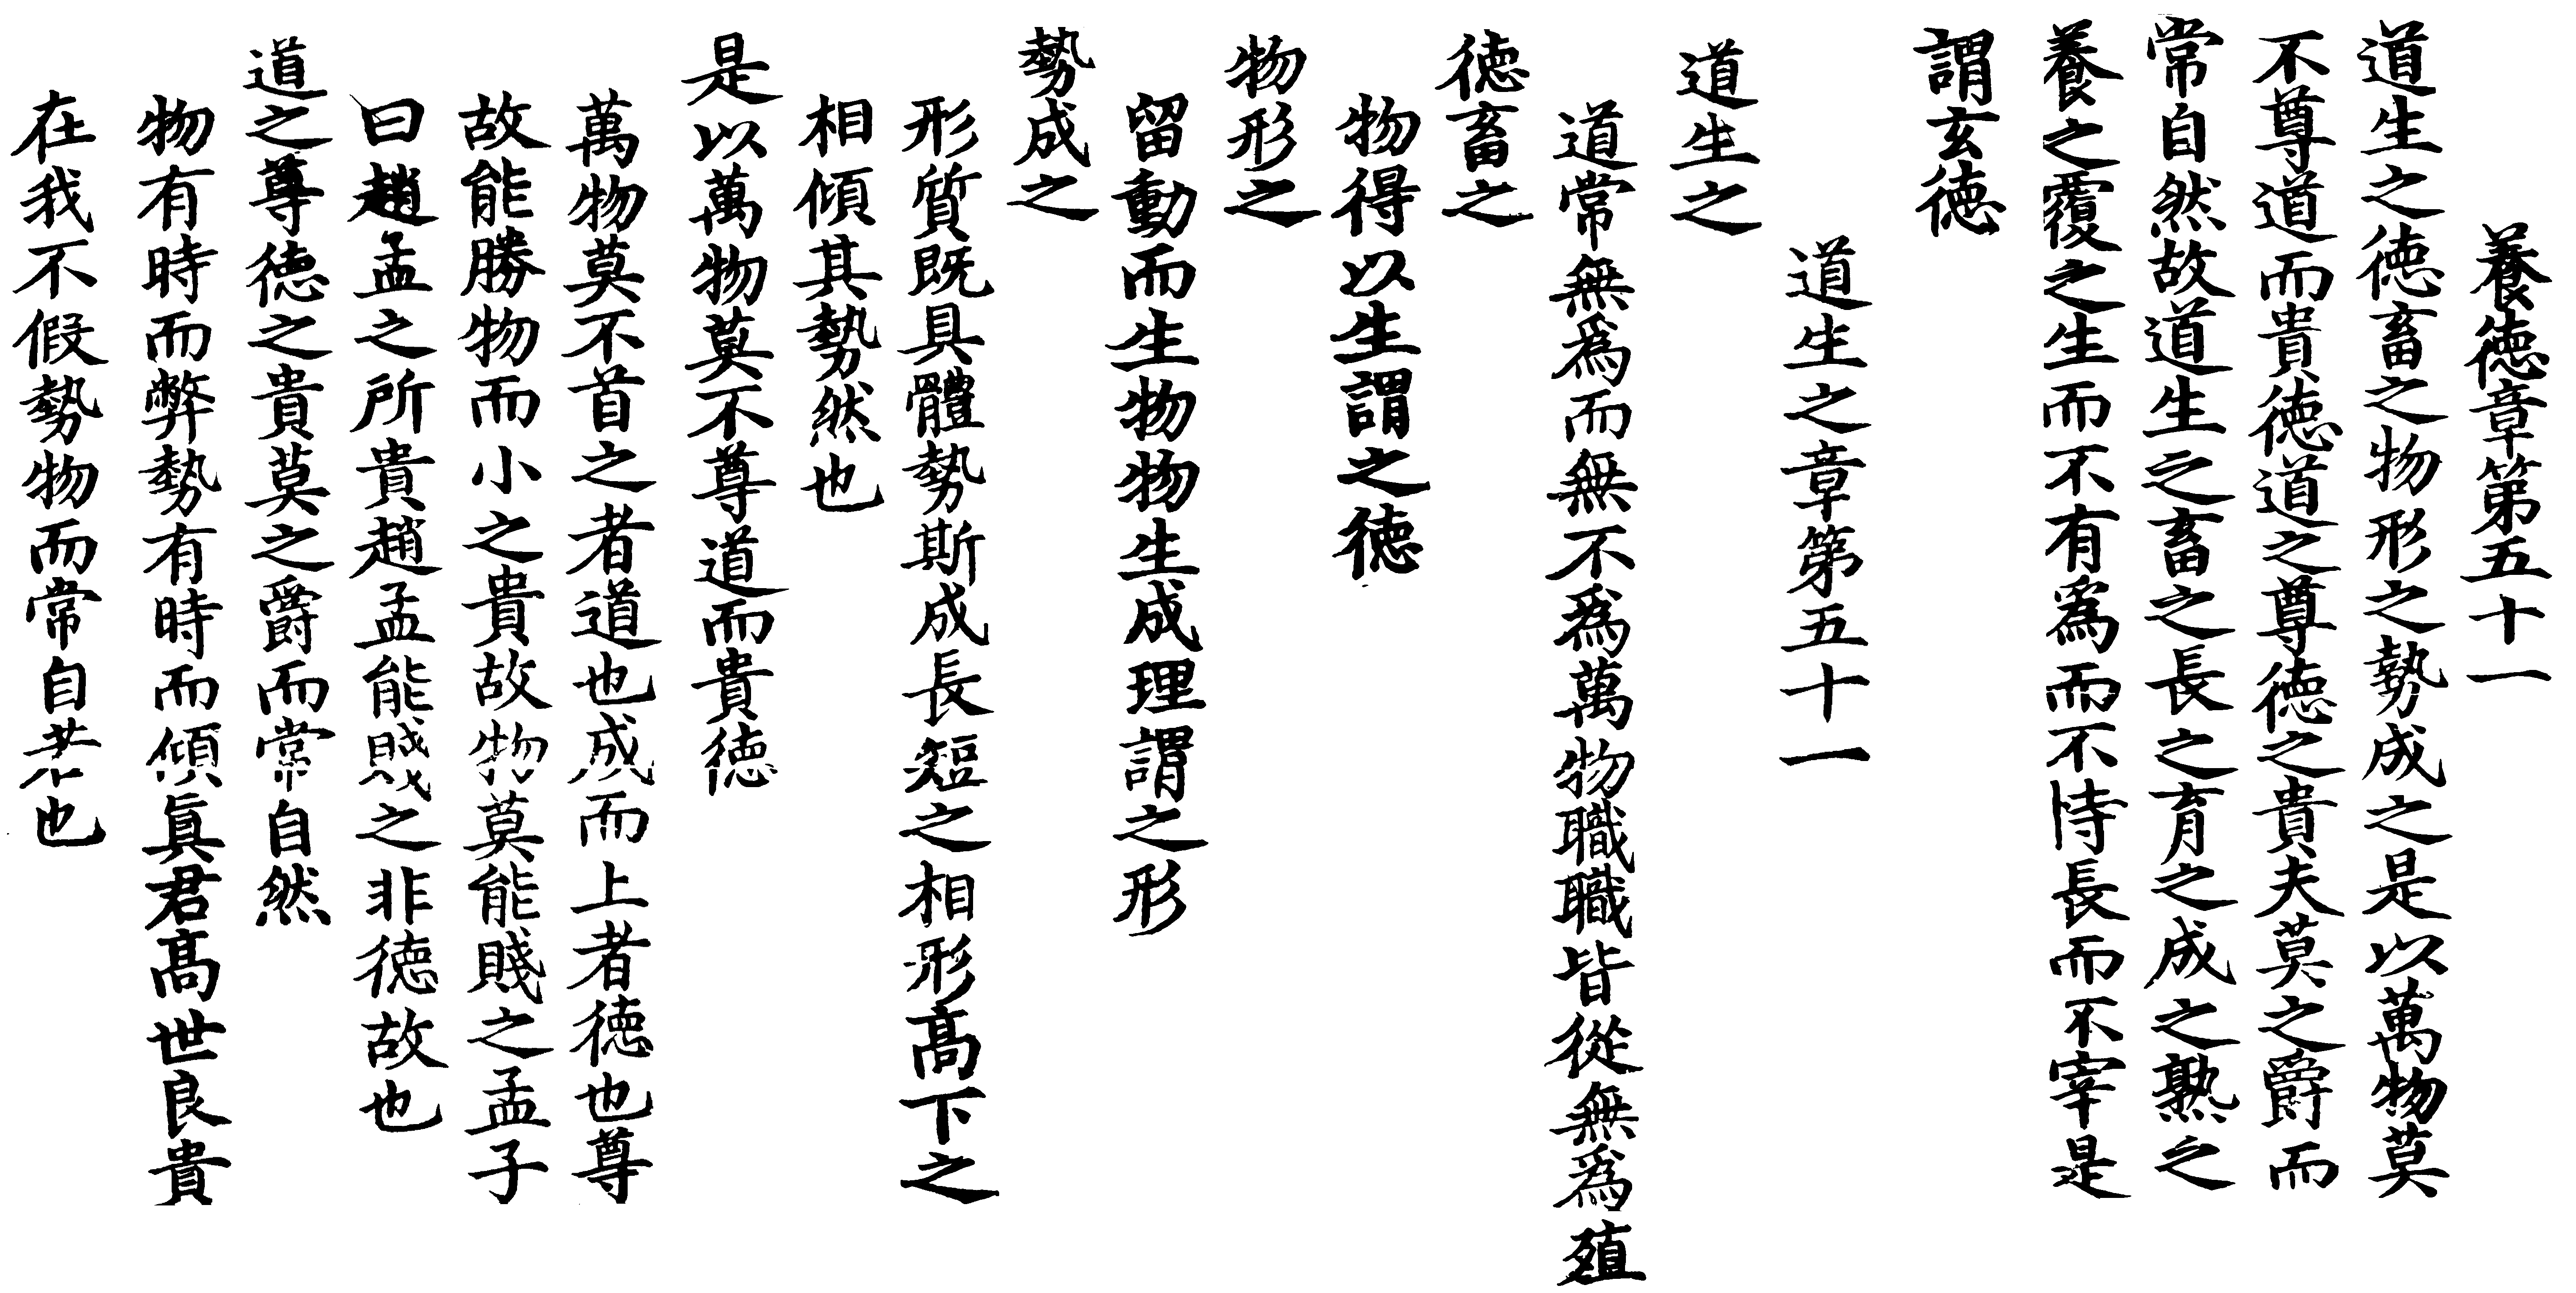 養德章第五十一
道生之德畜之物形之勢成之是以萬物莫
不尊道而貴德道之尊德之貴夫莫之爵而
常自然故道生之畜之長之育之成之熟之
養之覆之生而不有爲而不恃長而不宰是
謂玄德
道生之章第五十一
道生之
道常無爲而無不爲萬物職職皆從無爲殖
德畜之
物得以生謂之德
物形之
留動而生物物生成理謂之形
勢成之
形質既具體勢斯成長短之相形高下之
相傾其勢然也
是以萬物莫不尊道而貴德
萬物莫不首之者道也成而上者德也尊
故能勝物而小之貴故物莫能賤之孟子
曰趙孟之所貴趙孟能賤之非德故也
道之尊德之貴莫之爵而常自然
物有時而弊勢有時而傾眞君高世良貴
在我不假勢物而常自若也